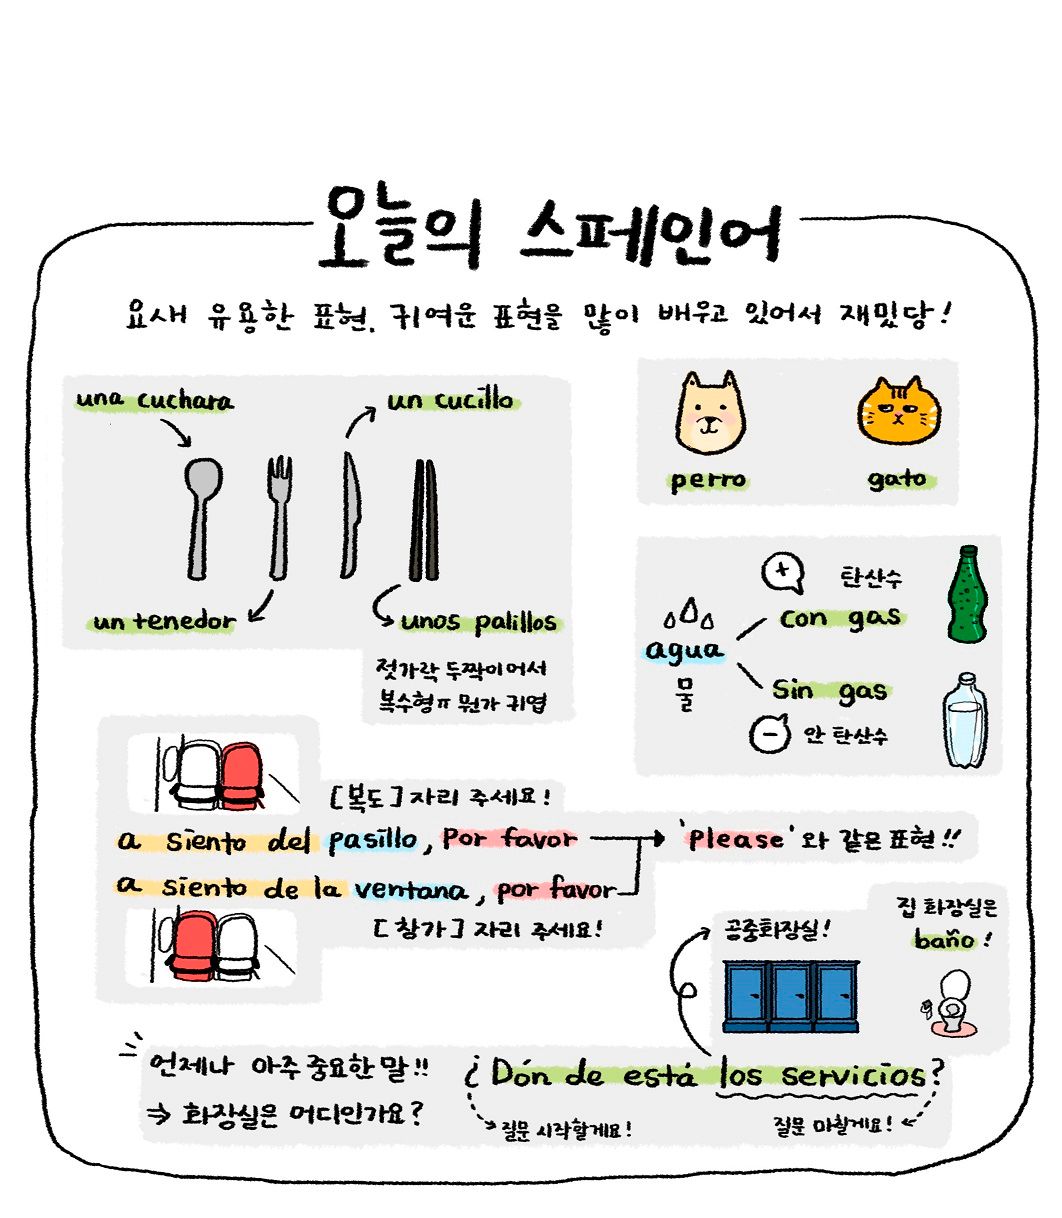 오늘의 스페인어
요새 유용한 표현, 귀여운 표현을 많이 배우고 있어서 재밌당!
una cuchara
un cucillo
un tenedor
unos palillos
젓가락 두짝이어서
복수형ㅠ 뭔가 귀엽
perro
gato
agua
물
+
탄산수
con gas
sin gas
-
안 탄산수
[복도] 자리 주세요!
a siento del pasillo, Por favor
'Please'와 같은 표현!!
a siento de la ventana, por favor
[창가] 자리 주세요!
공중화장실!
집 화장실은
baño!
언제나 아주 중요한 말!!
⇒ 화장실은 어디인가요?
¿Dón de está los servicios?
질문 시작할게요!
질문 마칠게요!